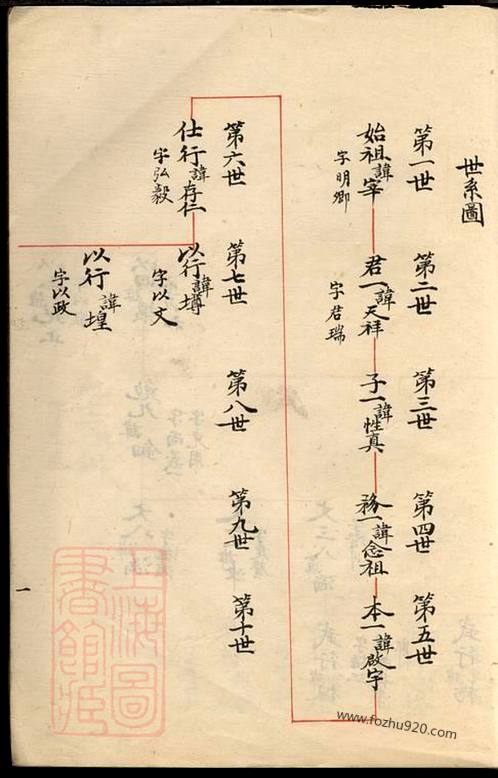 世系圖
第一世
第二世
第三世
第四世
第五世
始祖諱宰
字明卿
君一諱天祥
字君瑞
子一諱性真
務一諱念祖
本一諱啟宇
第六世
第七世
第八世
第九世
第十世
仕行諱存仁
字弘毅
以行諱壿
字以文
以行諱堭
字以政
一
上海圖書館藏
www.fozhu920.com